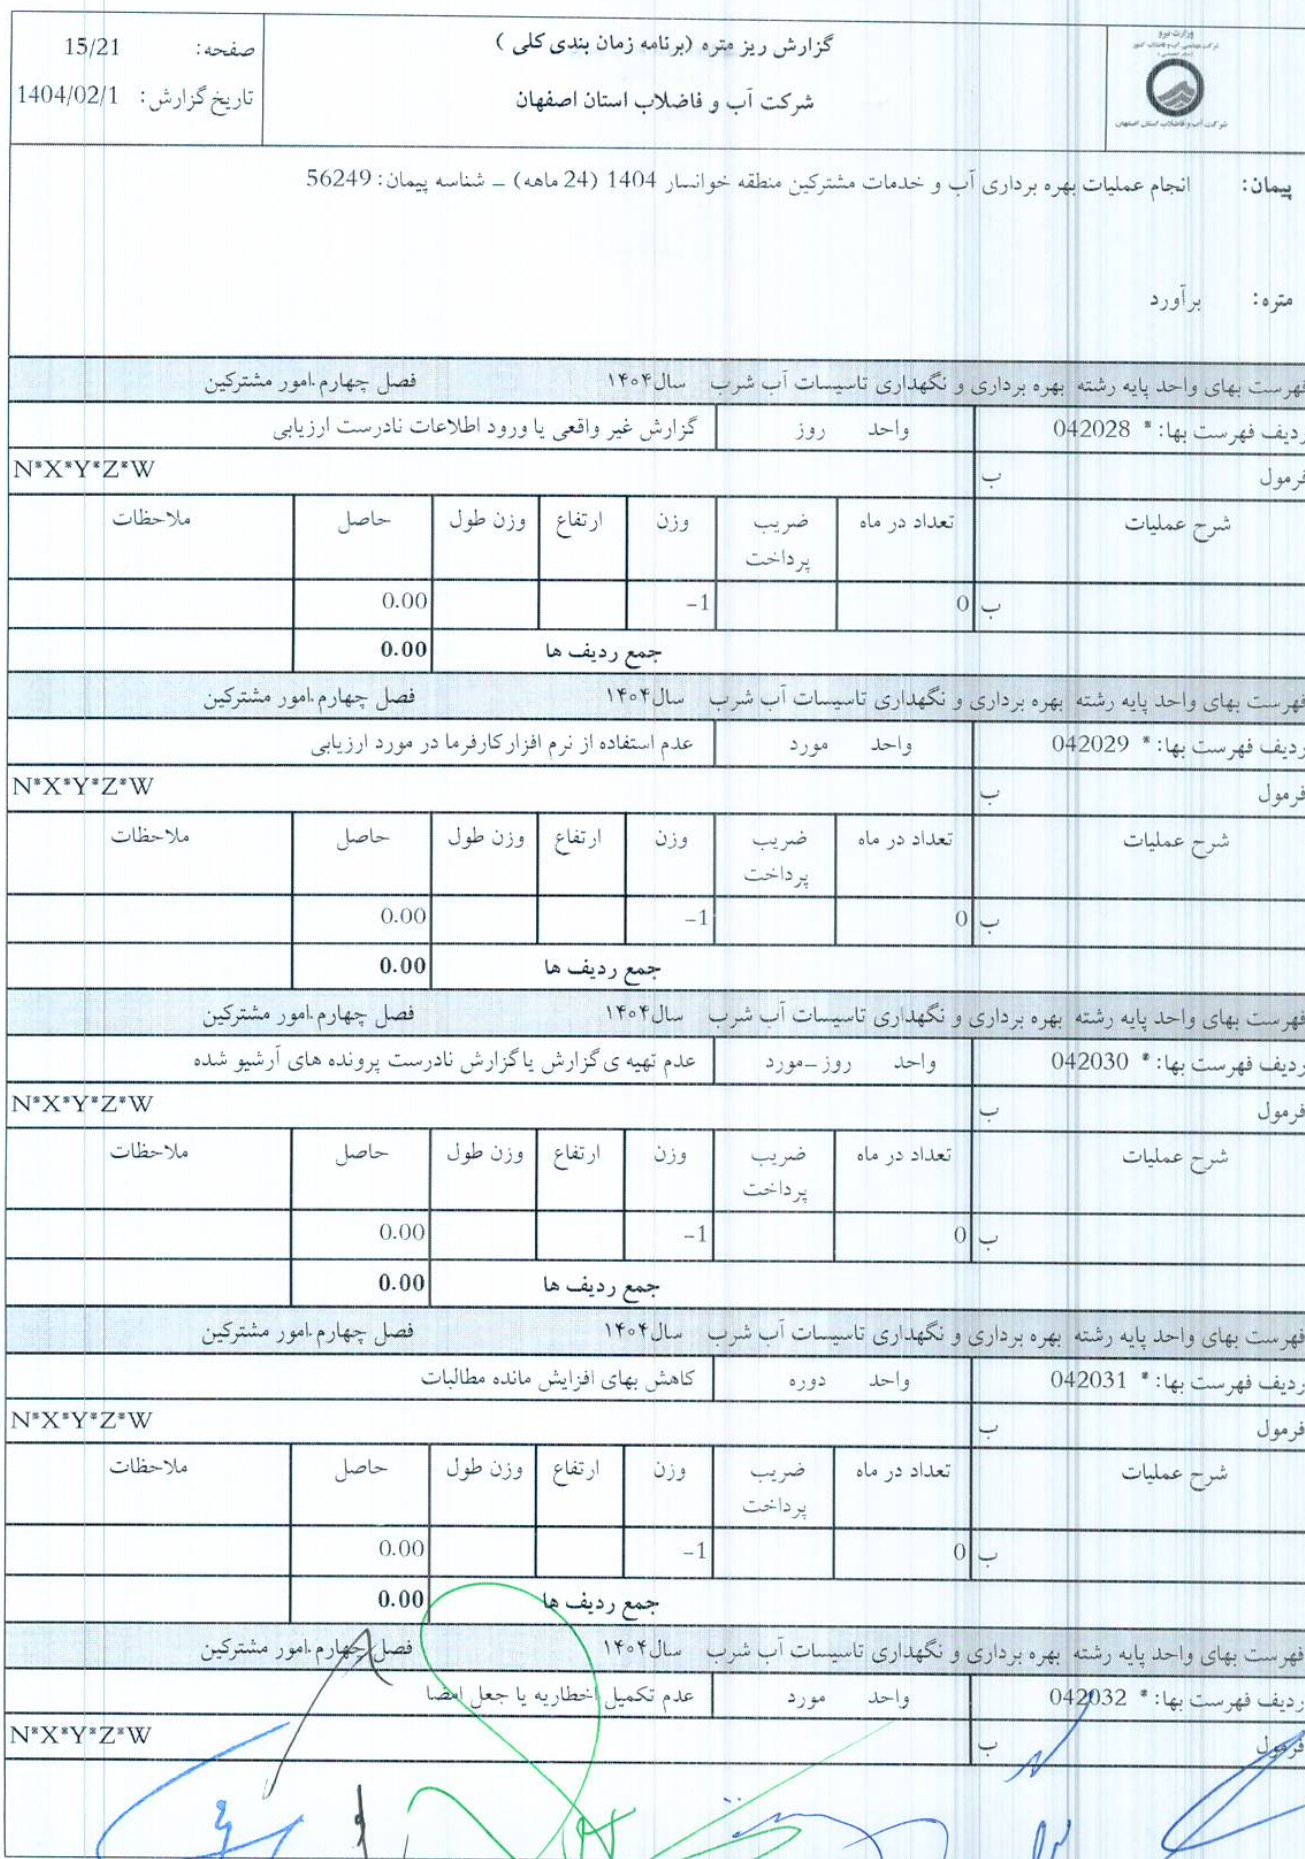 وزارت نیرو
گزارش ریز متره (برنامه زمان بندی کلی )
صفحه: 15/21
شرکت آب و فاضلاب استان اصفهان
تاریخ گزارش: 1404/02/1
شرکت آب و فاضلاب استان اصفهان
پیمان: انجام عملیات بهره برداری آب و خدمات مشترکین منطقه خوانسار 1404 (24 ماهه) – شناسه پیمان: 56249
متره: برآورد
فهرست بهای واحد پایه رشته بهره برداری و نگهداری تاسیسات آب شرب سال۱۴۰۴ فصل چهارم.امور مشترکین
ردیف فهرست بها: * 042028 واحد روز گزارش غیر واقعی یا ورود اطلاعات نادرست ارزیابی
فرمول ب N*X*Y*Z*W
شرح عملیات تعداد در ماه ضریب پرداخت وزن ارتفاع وزن طول حاصل ملاحظات
ب 0 -1 0.00
جمع ردیف ها 0.00
فهرست بهای واحد پایه رشته بهره برداری و نگهداری تاسیسات آب شرب سال۱۴۰۴ فصل چهارم.امور مشترکین
ردیف فهرست بها: * 042029 واحد مورد عدم استفاده از نرم افزار کارفرما در مورد ارزیابی
فرمول ب N*X*Y*Z*W
شرح عملیات تعداد در ماه ضریب پرداخت وزن ارتفاع وزن طول حاصل ملاحظات
ب 0 -1 0.00
جمع ردیف ها 0.00
فهرست بهای واحد پایه رشته بهره برداری و نگهداری تاسیسات آب شرب سال۱۴۰۴ فصل چهارم.امور مشترکین
ردیف فهرست بها: * 042030 واحد روز–مورد عدم تهیه ی گزارش یا گزارش نادرست پرونده های آرشیو شده
فرمول ب N*X*Y*Z*W
شرح عملیات تعداد در ماه ضریب پرداخت وزن ارتفاع وزن طول حاصل ملاحظات
ب 0 -1 0.00
جمع ردیف ها 0.00
فهرست بهای واحد پایه رشته بهره برداری و نگهداری تاسیسات آب شرب سال۱۴۰۴ فصل چهارم.امور مشترکین
ردیف فهرست بها: * 042031 واحد دوره کاهش بهای افزایش مانده مطالبات
فرمول ب N*X*Y*Z*W
شرح عملیات تعداد در ماه ضریب پرداخت وزن ارتفاع وزن طول حاصل ملاحظات
ب 0 -1 0.00
جمع ردیف ها 0.00
فهرست بهای واحد پایه رشته بهره برداری و نگهداری تاسیسات آب شرب سال۱۴۰۴ فصل چهارم.امور مشترکین
ردیف فهرست بها: * 042032 واحد مورد عدم تکمیل اخطاریه یا جعل امضا
فرمول ب N*X*Y*Z*W